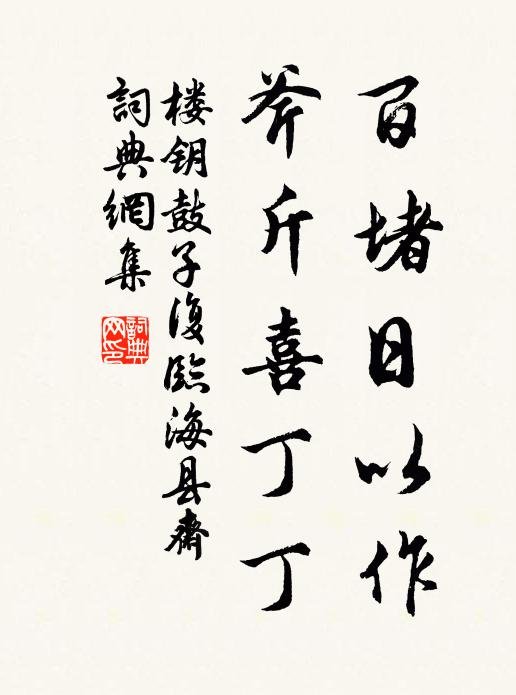 百堵日以作
斧斤喜丁丁
楼钥鼓子復臨海县齋
詞典網集
詞典网印